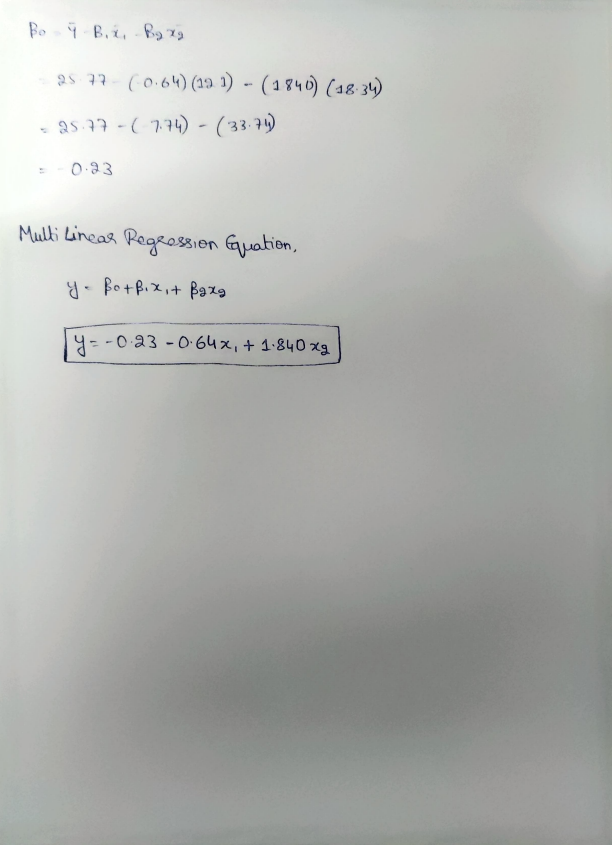 β0 = ȳ - β1x̄1 - β2x̄2
= 25.77 - (-0.64)(12.1) - (1.840)(18.34)
= 25.77 - (-7.74) - (33.74)
= -0.23
Multi Linear Regression Equation,
y = β0+β1x1+ β2x2
y = -0.23 - 0.64x1 + 1.840x2